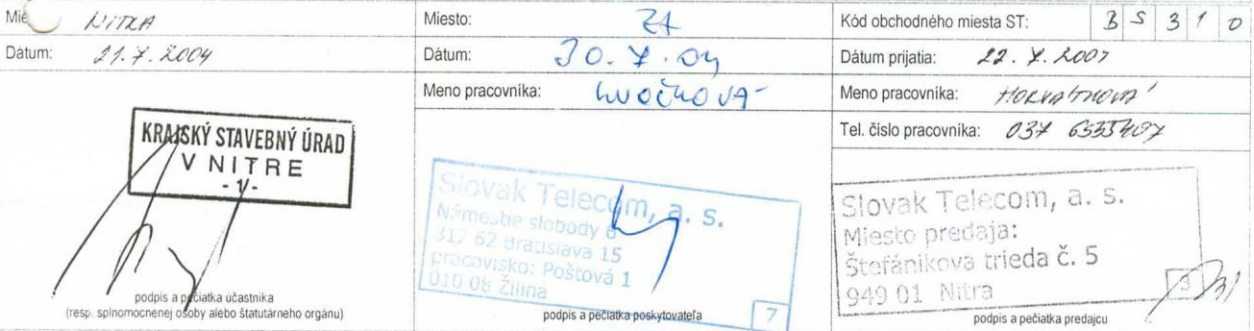 NITRA
Dátum: 21.7.2004
KRAJSKÝ STAVEBNÝ ÚRAD
V NITRE
- 1 -
podpis a pečiatka účastníka
(resp. splnomocnenej osoby alebo štatutárneho orgánu)
Miesto: ZA
Dátum: 30.7.04
Meno pracovníka:
Slovak Telecom, a. s.
Námestie slobody 6
817 62 Bratislava 15
pracovisko: Poštová 1
010 08 Žilina
7
podpis a pečiatka poskytovateľa
Kód obchodného miesta ST: B S 3 1 0
Dátum prijatia: 22. 7.
Meno pracovníka:
Tel. číslo pracovníka: 037
Slovak Telecom, a. s.
Miesto predaja:
Štefánikova trieda č. 5
949 01 Nitra
3
podpis a pečiatka predajcu